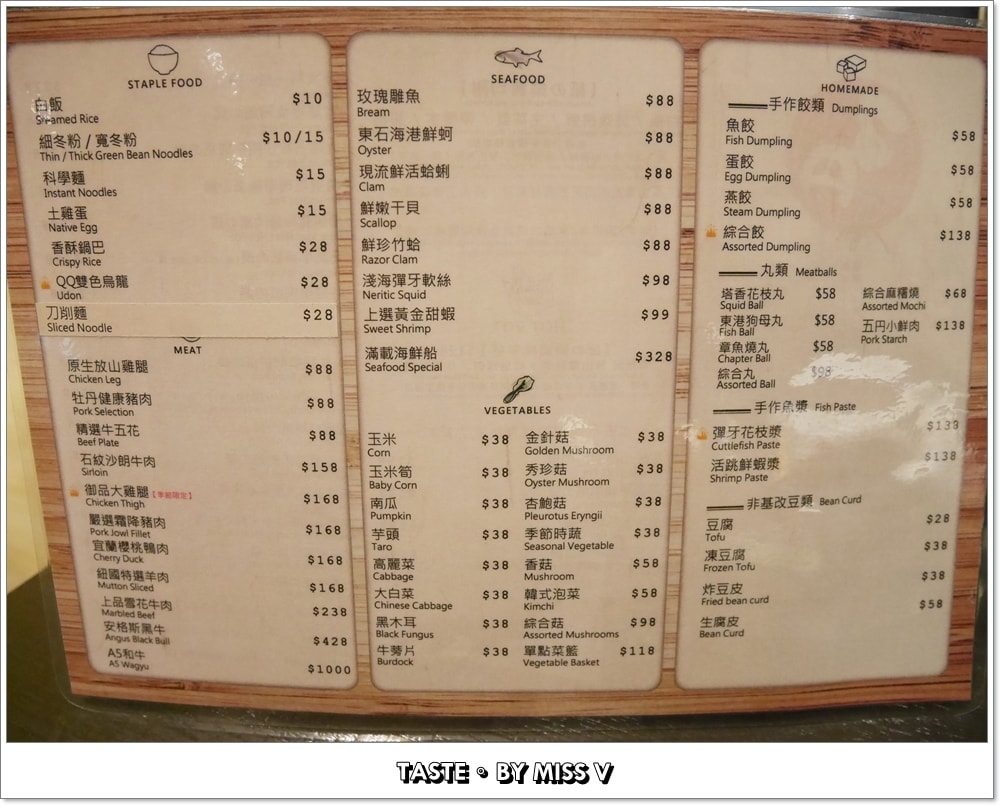 STAPLE FOOD
白飯 $10
Steamed Rice
細冬粉 / 寬冬粉 $10/15
Thin / Thick Green Bean Noodles
科學麵 $15
Instant Noodles
土雞蛋 $15
Native Egg
香酥鍋巴 $28
Crispy Rice
QQ雙色烏龍 $28
Udon
刀削麵 $28
Sliced Noodle
MEAT
原生放山雞腿 $88
Chicken Leg
牡丹健康豬肉 $88
Pork Selection
精選牛五花 $88
Beef Plate
石紋沙朗牛肉 $158
Sirloin
御品大雞腿【季節限定】 $168
Chicken Thigh
嚴選霜降豬肉 $168
Pork Jowl Fillet
宜蘭櫻桃鴨肉 $168
Cherry Duck
紐國特選羊肉 $168
Mutton Sliced
上品雪花牛肉 $238
Marbled Beef
安格斯黑牛 $428
Angus Black Bull
A5和牛 $1000
A5 Wagyu
SEAFOOD
玫瑰雕魚 $88
Bream
東石海港鮮蚵 $88
Oyster
現流鮮活蛤蜊 $88
Clam
鮮嫩干貝 $88
Scallop
鮮珍竹蛤 $88
Razor Clam
淺海彈牙軟絲 $98
Neritic Squid
上選黃金甜蝦 $99
Sweet Shrimp
滿載海鮮船 $328
Seafood Special
VEGETABLES
玉米 $38
Corn
玉米筍 $38
Baby Corn
南瓜 $38
Pumpkin
芋頭 $38
Taro
高麗菜 $38
Cabbage
大白菜 $38
Chinese Cabbage
黑木耳 $38
Black Fungus
牛蒡片 $38
Burdock
金針菇 $38
Golden Mushroom
秀珍菇 $38
Oyster Mushroom
杏鮑菇 $38
Pleurotus Eryngii
季節時蔬 $38
Seasonal Vegetable
香菇 $58
Mushroom
韓式泡菜 $58
Kimchi
綜合菇 $98
Assorted Mushrooms
單點菜籃 $118
Vegetable Basket
HOMEMADE
手作餃類 Dumplings
魚餃 $58
Fish Dumpling
蛋餃 $58
Egg Dumpling
燕餃 $58
Steam Dumpling
綜合餃 $138
Assorted Dumpling
丸類 Meatballs
塔香花枝丸 $58
Squid Ball
東港狗母丸 $58
Fish Ball
章魚燒丸 $58
Chapter Ball
綜合丸 $98
Assorted Ball
綜合麻糬燒 $68
Assorted Mochi
五円小鮮肉 $138
Pork Starch
手作魚漿 Fish Paste
彈牙花枝漿 $138
Cuttlefish Paste
活跳鮮蝦漿 $138
Shrimp Paste
非基改豆類 Bean Curd
豆腐 $28
Tofu
凍豆腐 $38
Frozen Tofu
炸豆皮 $38
Fried bean curd
生腐皮 $58
Bean Curd
TASTE • BY MISS V